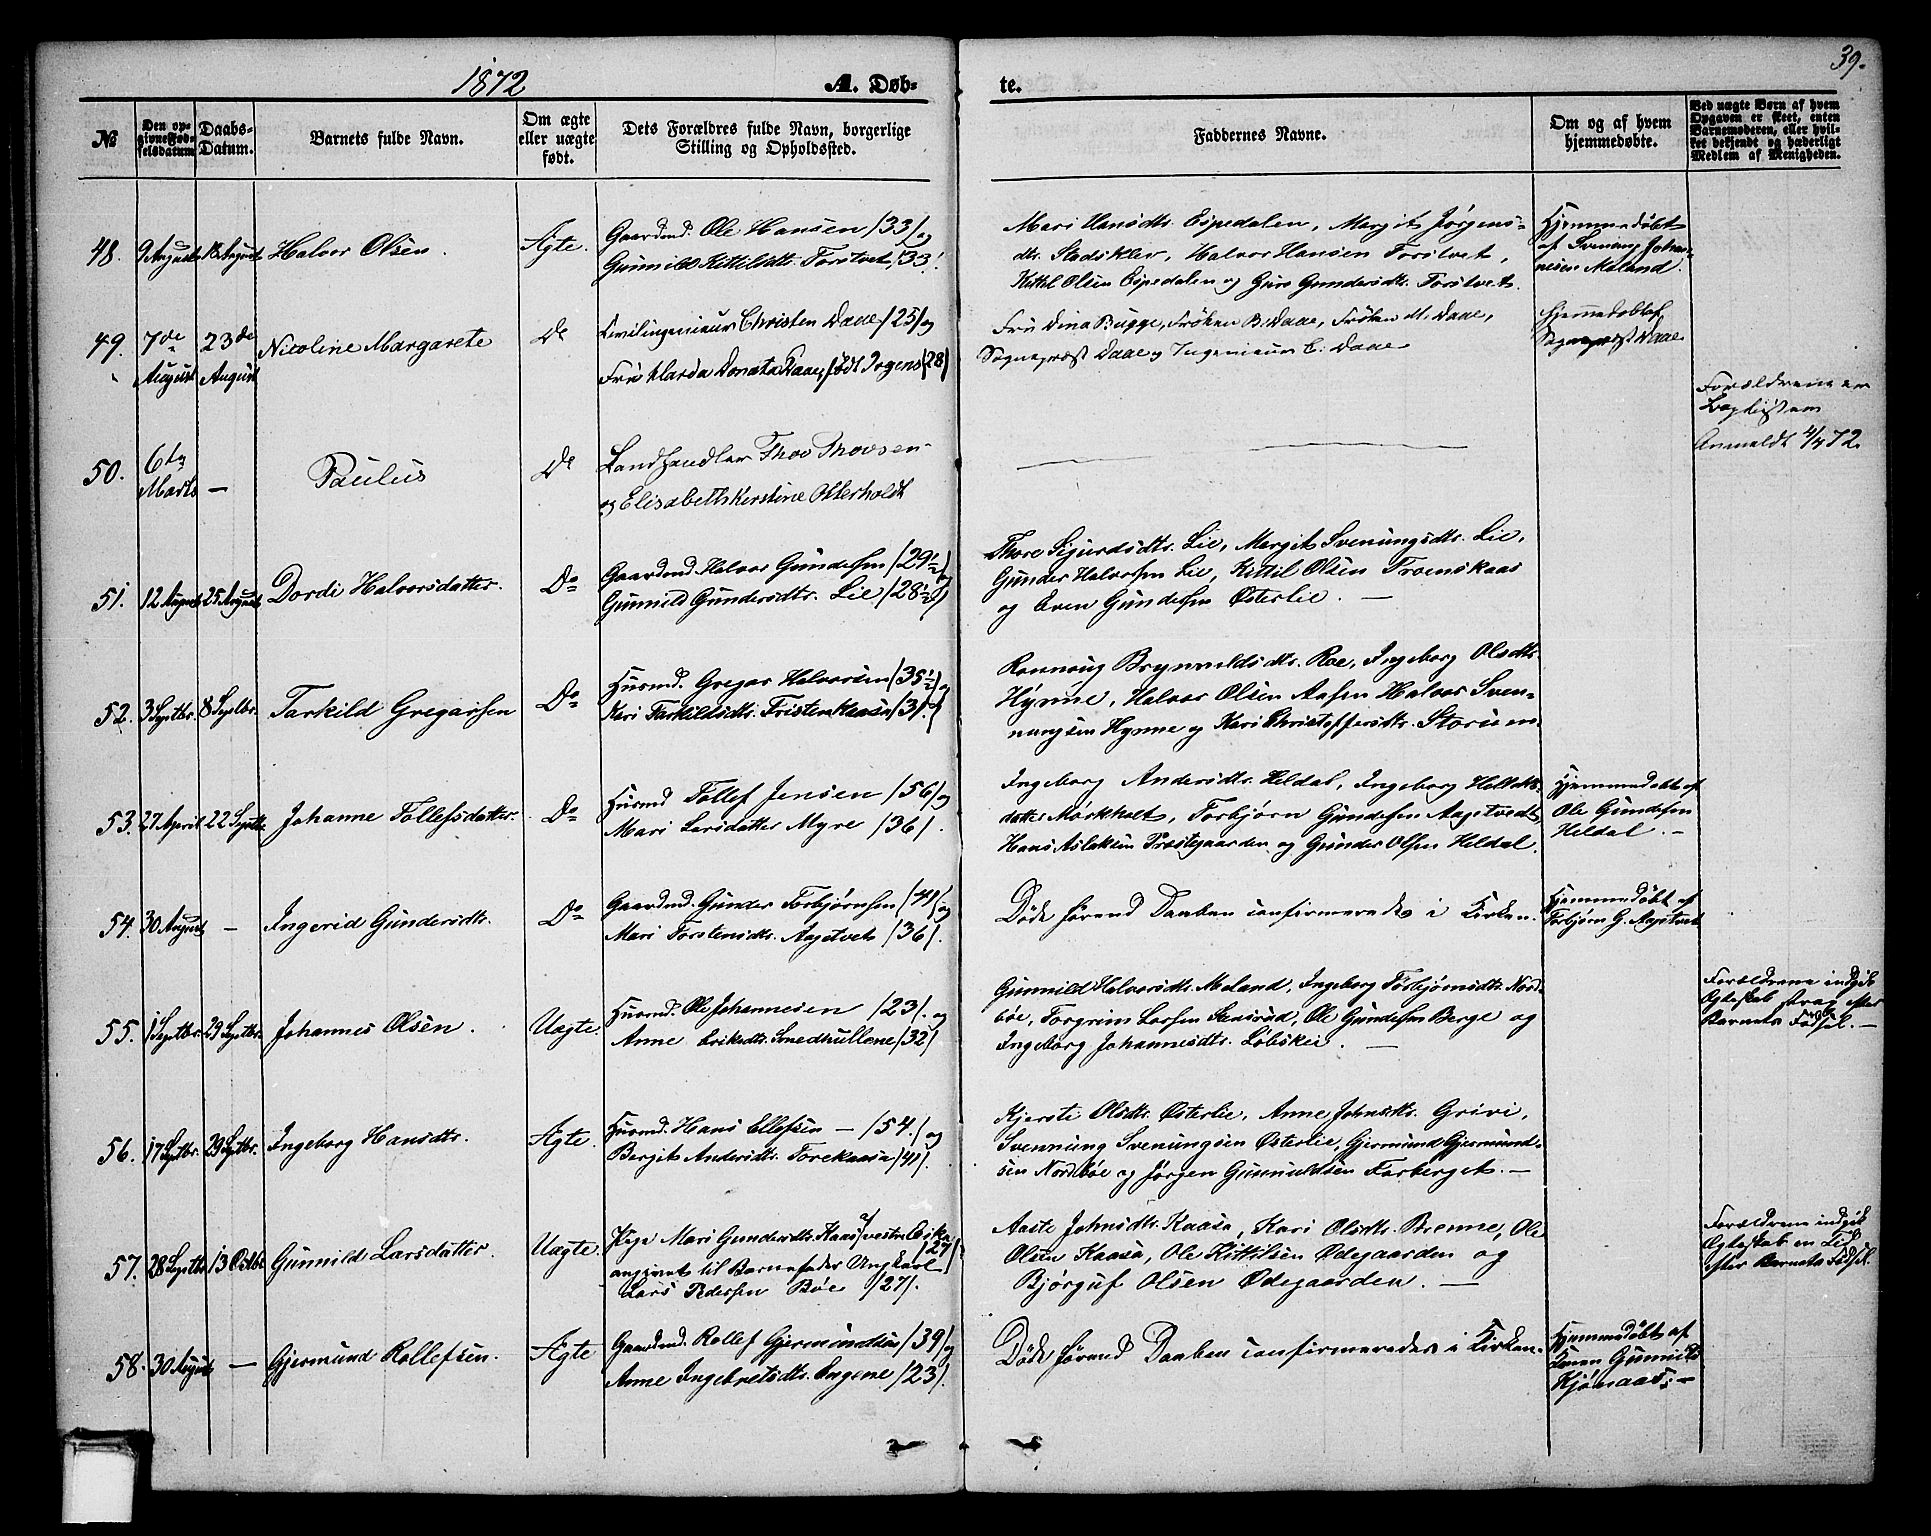 1872
A. Døb-
te.
39.
№
Den op-
givne Fød-
selsdatum
Daabs-
Datum.
Barnets fulde Navn.
Om ægte
eller uægte
født.
Dets Forældres fulde Navn, borgerlige
Stilling og Opholdssted.
Faddernes Navne.
Om og af hvem
hjemmedøbte.
Ved uægte Børn af hvem
Opgaven er skeet, enten
Barnemoderen, eller hvil-
ket bekjendt og hæderligt
Medlem af Menigheden.
48. 9 August 18 August Halvor Olsen. Ægte.
Gaardmd. Ole Hansen /33/ og
Gunnild Kittilsdtr. Torstvet /33/.
Mari Hansdtr. Espedalen, Margit Jørgens-
dtr. Stadsklev, Halvor Hansen Torstvet,
Kittil Olsen Espedalen og Guro Gundersdtr. Torstvet.
Hjemmedøbt
af Svenung Johan-
nesen Moland.
49. 7de August 23de August Nicoline Margarete Do
Civilingenieur Christen Daae /25/ og
Fru Marda Donata Daae, født Irgens /28/
Fru Dina Bugge, Frøken B. Daae, Frøken M. Daae,
Sognepræst Daae og Ingenieur C. Daae
Hjemmedøbt af
Sognepræst Daae
50. 6te Marts — Paulus Do
Landhandler Thov Thovsen
og Elisabeth Kirstine Otterholdt
Forældrene ere
Baptister
Anmeldt 4/9 72.
51. 12 August 25 August Dordi Halvorsdatter. Do
Gaardmd. Halvor Gundersen /29½/ og
Gunnild Gundersdtr. Lie /28½/
Thore Sigurdsdtr. Lie, Margit Svenungsdtr. Lie,
Gunder Halvorsen Lie, Kittil Olsen Tronskaas
og Even Gundersen Østerlie. —
52. 3 Septbr. 8 Septbr. Tarkild Gregarsen Do
Husmd. Gregar Halvorsen /35½/ og
Kari Tarkildsdtr. Fristenkaasa /31/.
Rannoug Brynnildsdtr. Roe, Ingeborg Olsdtr.
Hynne, Halvor Olsen Aasen Halvor Sven-
nungsen Hynne og Kari Christoffersdtr. Storum
53. 27 April 22 Septbr. Johanne Tollefsdatter. Do
Husmd Tollef Jensen /56/ og
Mari Larsdatter Myre /36/.
Ingeborg Andersdtr. Heldal, Ingeborg Helleks-
datter Mørkholt, Torbjørn Gundersen Aagetvedt,
Hans Aslaksen Præstegaarden og Gunder Olsen Heldal.
Hjemmedøbt af
Ole Gundersen
Heldal. —
54. 30 August — Ingerid Gundersdtr. Do
Gaardmd. Gunder Torbjørnsen /49/ og
Mari Torstensdtr. Aagetvet /36/.
Døde førend Daaben confirmeredes i Kirken.
Hjemmedøbt af
Torbjørn G. Aagetvet
55. 1 Septbr. 29 Septbr. Johannes Olsen. Uægte.
Husmd. Ole Johannesen /23/. og
Anne Eriksdtr. Smedhullene /32/
Gunnild Halvorsdtr. Moland, Ingeborg Torbjørnsdtr. Nord-
bøe, Torgrim Larsen Stensrud, Ole Gundersen Berge og
Ingeborg Johannesdtr. Løbskei. —
Forældrene indgik
Ægteskab strax efter
Barnets Fødsel. —
56. 17 Septbr. 29 Septbr. Ingeborg Hansdtr. Ægte.
Husmd. Hans Ellefsen — /54/ og
Bergit Andersdtr. Torekaasa /41/.
Kjersti Olsdtr. Østerlie, Anne Johnsdtr. Grivi,
Svennung Svenungsen Østerlie, Gjermund Gjermund-
sen Nordbøe og Jørgen Gunnuldsen Farberget. —
57. 28 Septbr 13 Octbr Gunnild Larsdatter. Uægte.
Pige Mari Gundersdtr. Kaasa vestre /27/
angivet til Barnefader Ungkarl
Lars Pedersen Bøe /27/.
Aaste Johnsdtr. Kaasa, Kari Olsdtr. Brenne, Ole
Olsen Kaasa, Ole Kittilsen Ødegaarden og
Bjørguf Olsen Ødegaarden. —
Forældrene indgik
Ægteskab en Tid
efter Barnets Fødsel.
58. 30 August — Gjermund Rollefsen. Ægte
Gaardmd. Rollef Gjermundsen /39/ og
Anne Ingebretsdtr. Ingene /23/.
Døde førend Daaben confirmeredes i Kirken.
Hjemmedøbt af
Konen Gunnild
Kjønaas. —